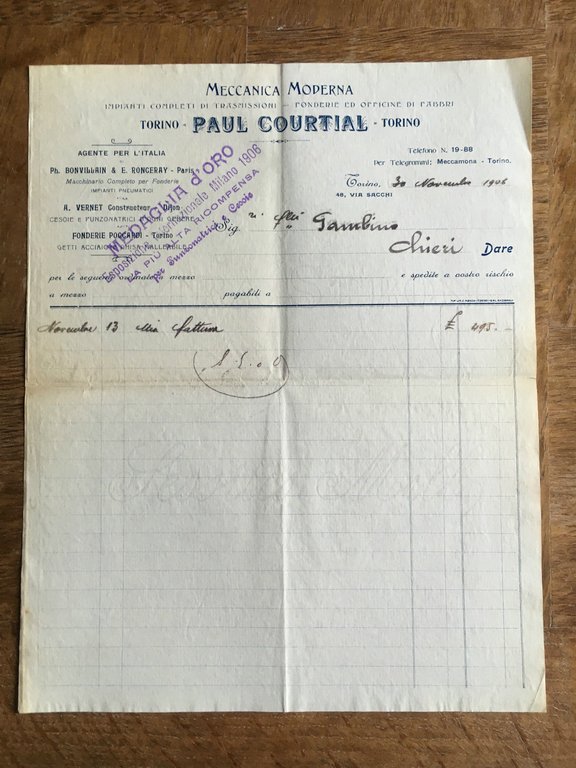 MECCANICA MODERNA
IMPIANTI COMPLETI DI TRASMISSIONI — FONDERIE ED OFFICINE DI FABBRI
TORINO - PAUL COURTIAL - TORINO
AGENTE PER L'ITALIA
Ph. BONVILLAIN & E. RONCERAY - Paris
Macchinario Completo per Fonderie
IMPIANTI PNEUMATICI
A. VERNET Constructeur - Dijon
CESOIE E PUNZONATRICI D'OGNI GENERE
FONDERIE POCCARDI - Torino
GETTI ACCIAIO E GHISA MALLEABILE
MEDAGLIA d'ORO
Esposizione Internazionale Milano 1906
LA PIÙ ALTA RICOMPENSA
per Punzonatrici & Cesoie
Telefono N. 19-88
Per Telegrammi: Meccamona - Torino.
Torino, 30 Novembre 1906
48, VIA SACCHI
Sig.ri Flli Gambino
Chieri Dare
per le seguenti ordinateci a mezzo e spedite a vostro rischio
a mezzo pagabili a
Novembre 13 Mia fattura £ 495.-